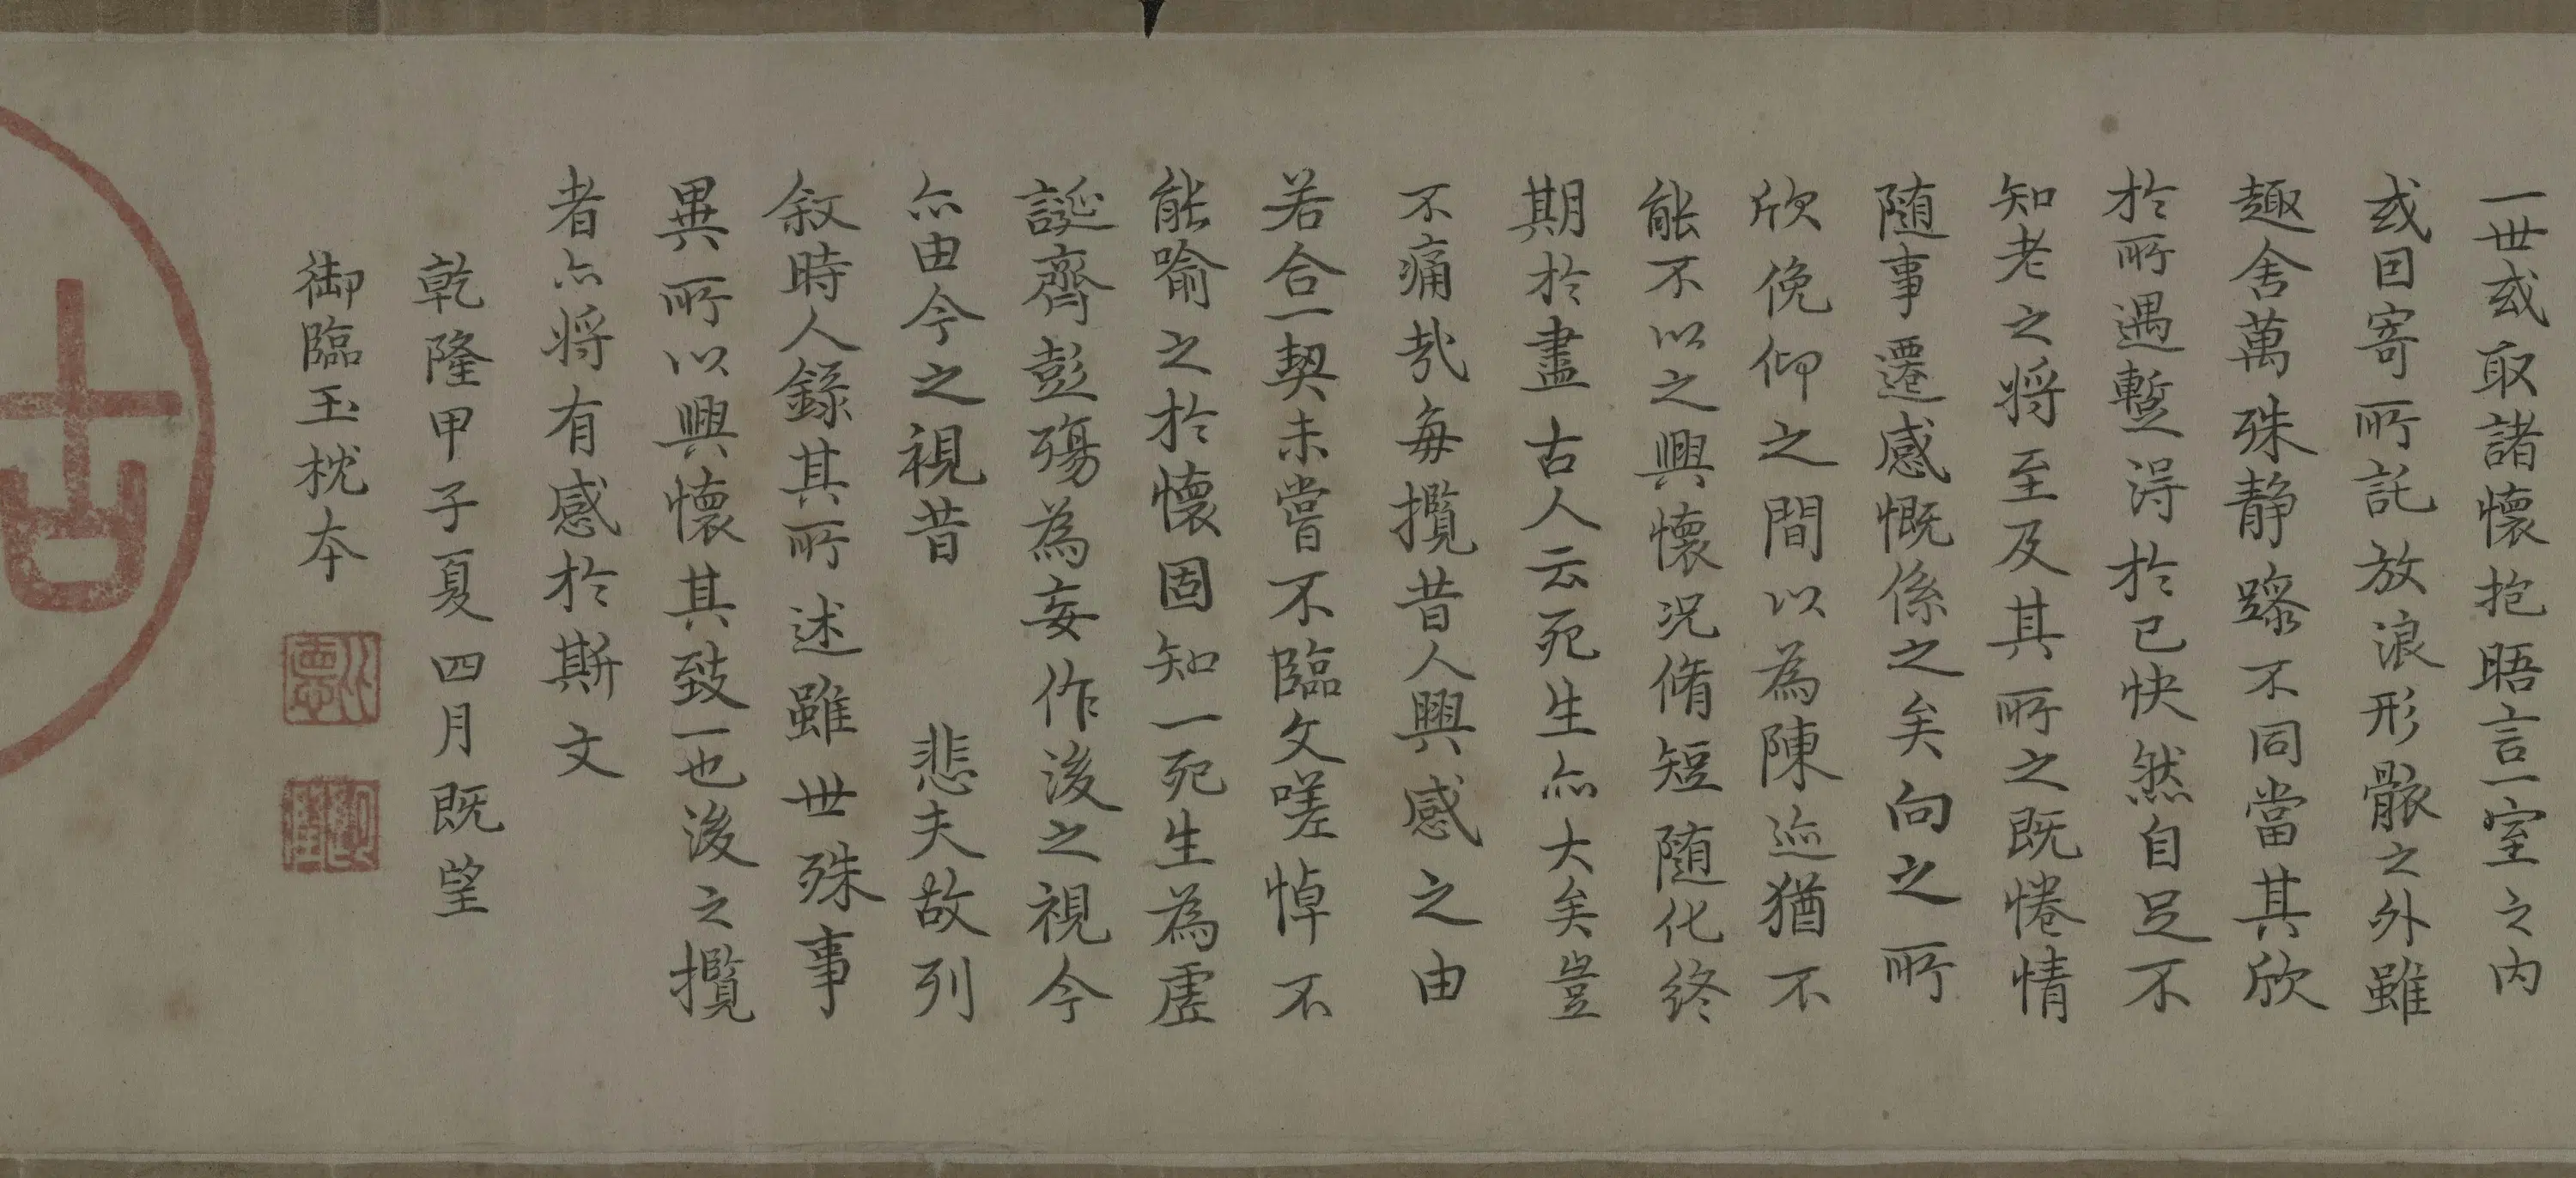 一世或取諸懷抱晤言一室之内
或因寄所託放浪形骸之外雖
趣舍萬殊静躁不同當其欣
於所遇蹔得於己快然自足不
知老之将至及其所之既惓情
随事遷感慨係之矣向之所
欣俛仰之間以為陳迹猶不
能不以之興懷况脩短随化终
期於盡古人云死生亦大矣豈
不痛哉每攬昔人興感之由
若合一契未嘗不臨文嗟悼不
能喻之於懷固知一死生為虚
誕齊彭殤為妄作後之視今
亦由今之視昔 悲夫故列
叙時人錄其所述雖世殊事
異所以興懷其致一也後之攬
者亦将有感於斯文
乾隆甲子夏四月既望
御臨玉枕本
古